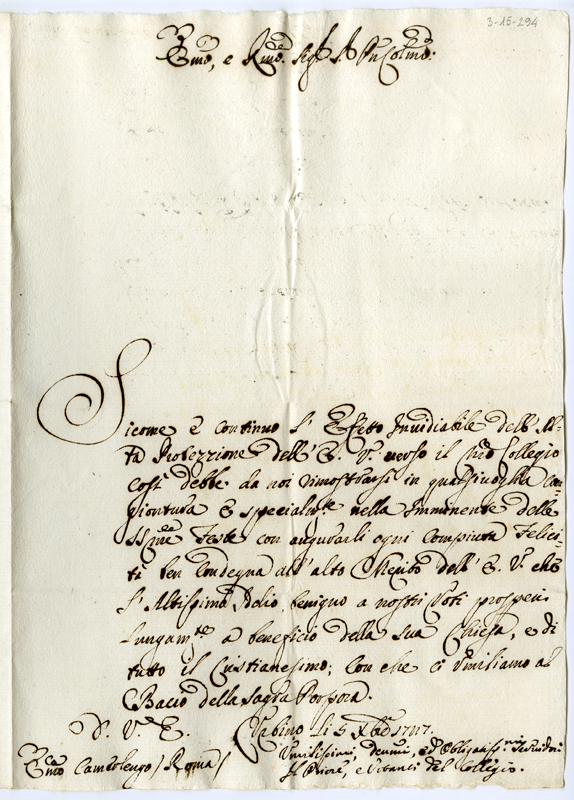 3-15-294
Em̃o, e Rm̃o. Sig.r P̃ron Colm̃o.
Sicome è continuo l'Effetto Invidiabile dell'Al-
ta Protezzione dell'E. V. verso il nr̃o Collegio
così debbe da noi rimostrarsi in qualsivoglia Con-
giontura e specialm.te nella Imminente delle
SSm̃e Feste con augurarli ogni compiuta Felici-
tà ben Condegna all'alto Merito dell'E. V. che
l'Altissimo Iddio benigno a nostri Voti prosperi
lungam.te a beneficio della sua Chiesa, e di
tutto il Cristianesimo; Con che ci umiliamo al
Bacio della Sagra Porpora.
D. V. E. Urbino li 5 Xbre 1717.
Umilissimi, Devmi, ed Obligatss.mi Servidori
Em̃o / Roma / Il Priore, e del Collegio.